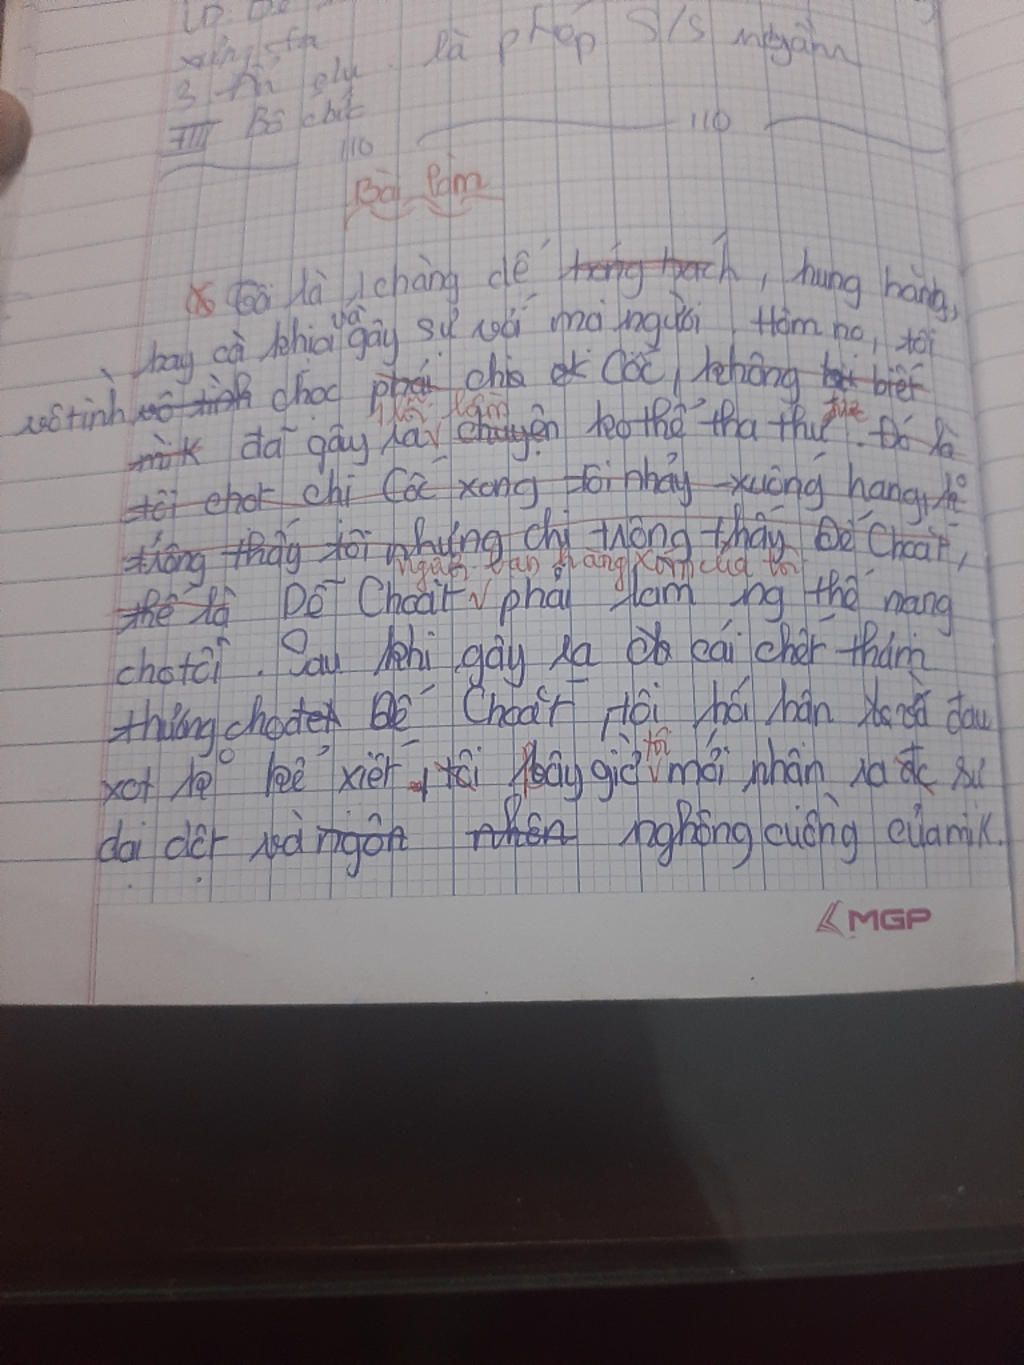 là phép S/S ngầm
3 Ẩn dụ
III Bố cục
110 110
Bài làm
Tôi là 1 chàng dế hung hăng,
hay cà khịa và gây sự với mọi người. Hôm nọ, tôi
vô tình vô tình chọc phải chị Cốc, không biết
mìk đã gây ra lỗi lầm chuyện ko thể tha thứ được. Đó là
tôi chọt chị Cốc xong tôi nhảy xuống hang, ko
trông thấy tôi nhưng chị trông thấy Dế Choắt,
ngần bạn hàng xóm của tôi
thế là Dế Choắt phải làm ng thế mạng
cho tôi. Sau khi gây ra cái chết thảm
thương cho Dế Choắt, tôi hối hận và đau
xót ko kể xiết, tôi bây giờ tôi mới nhận ra đc sự
dại dột và ngôn nhôn nghông cuồng của mìk.
MGP